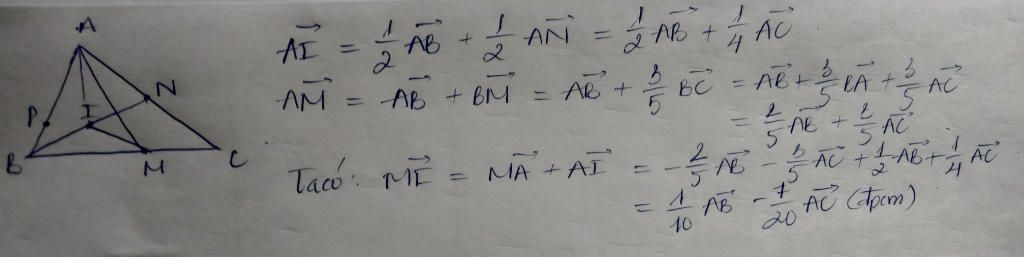 A
P
I
N
B
M
C
AI→ = 1/2 AB→ + 1/2 AN→ = 1/2 AB→ + 1/4 AC→
AM→ = AB→ + BM→ = AB→ + 3/5 BC→ = AB→ + 3/5 BA→ + 3/5 AC→
= 2/5 AB→ + 3/5 AC→
Ta có: MI→ = MA→ + AI→ = -2/5 AB→ - 3/5 AC→ + 1/2 AB→ + 1/4 AC→
= 1/10 AB→ - 7/20 AC→ (đpcm)